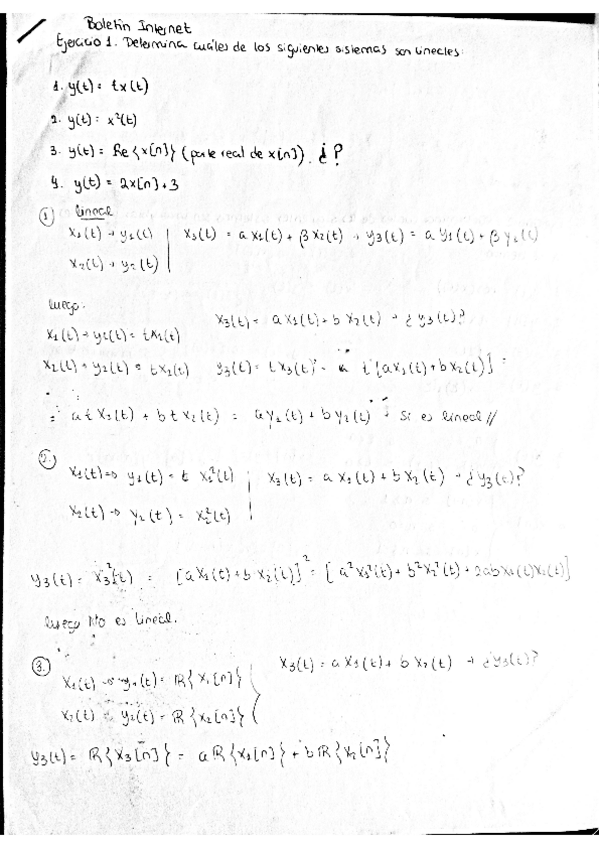 Boletín Internet
Ejercicio 1. Determina cuáles de los siguientes sistemas son lineales:
1. y(t) = t x(t)
2. y(t) = x²(t)
3. y(t) = Re{x[n]} (parte real de x[n]). ¿?
4. y(t) = 2x[n]+3
① lineal
x₁(t) → y₁(t) | x₃(t) = a x₁(t) + β x₂(t) → y₃(t) = a y₁(t) + β y₂(t)
x₂(t) → y₂(t)
luego:
x₃(t) = a x₁(t) + b x₂(t) → ¿y₃(t)?
x₁(t) → y₁(t) = t x₁(t)
x₂(t) → y₂(t) = t x₂(t) y₃(t) = t x₃(t) = t [a x₁(t) + b x₂(t)] =
= a t x₁(t) + b t x₂(t) = a y₁(t) + b y₂(t) → Si es lineal //
②
x₁(t) → y₁(t) = t x₁²(t) | x₃(t) = a x₁(t) + b x₂(t) → ¿y₃(t)?
x₂(t) → y₂(t) = x₂²(t)
y₃(t) = x₃²(t) = [a x₁(t) + b x₂(t)]² = [a² x₁²(t) + b² x₂²(t) + 2ab x₁(t) x₂(t)]
luego No es lineal.
③ x₃(t) = a x₁(t) + b x₂(t) → ¿y₃(t)?
x₁(t) → y₁(t) = ℝ{x₁[n]}
x₂(t) → y₂(t) = ℝ{x₂[n]}
y₃(t) = ℝ{x₃[n]} = a ℝ{x₁[n]} + b ℝ{x₂[n]}